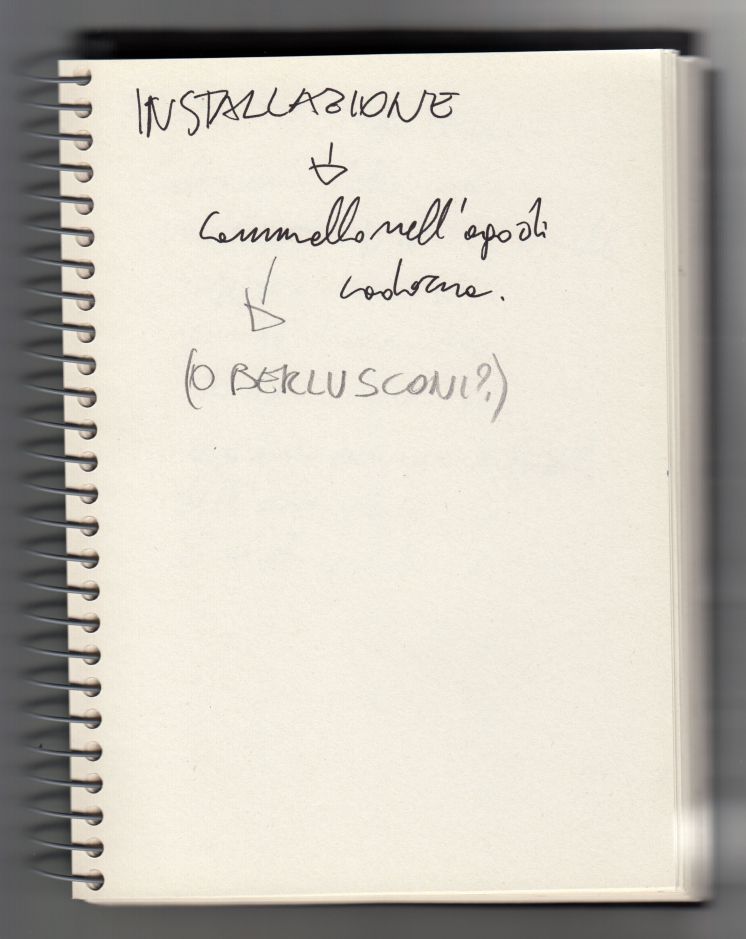 INSTALLAZIONE
cammello nell'ago di
cadorna.
(O BERLUSCONI?)